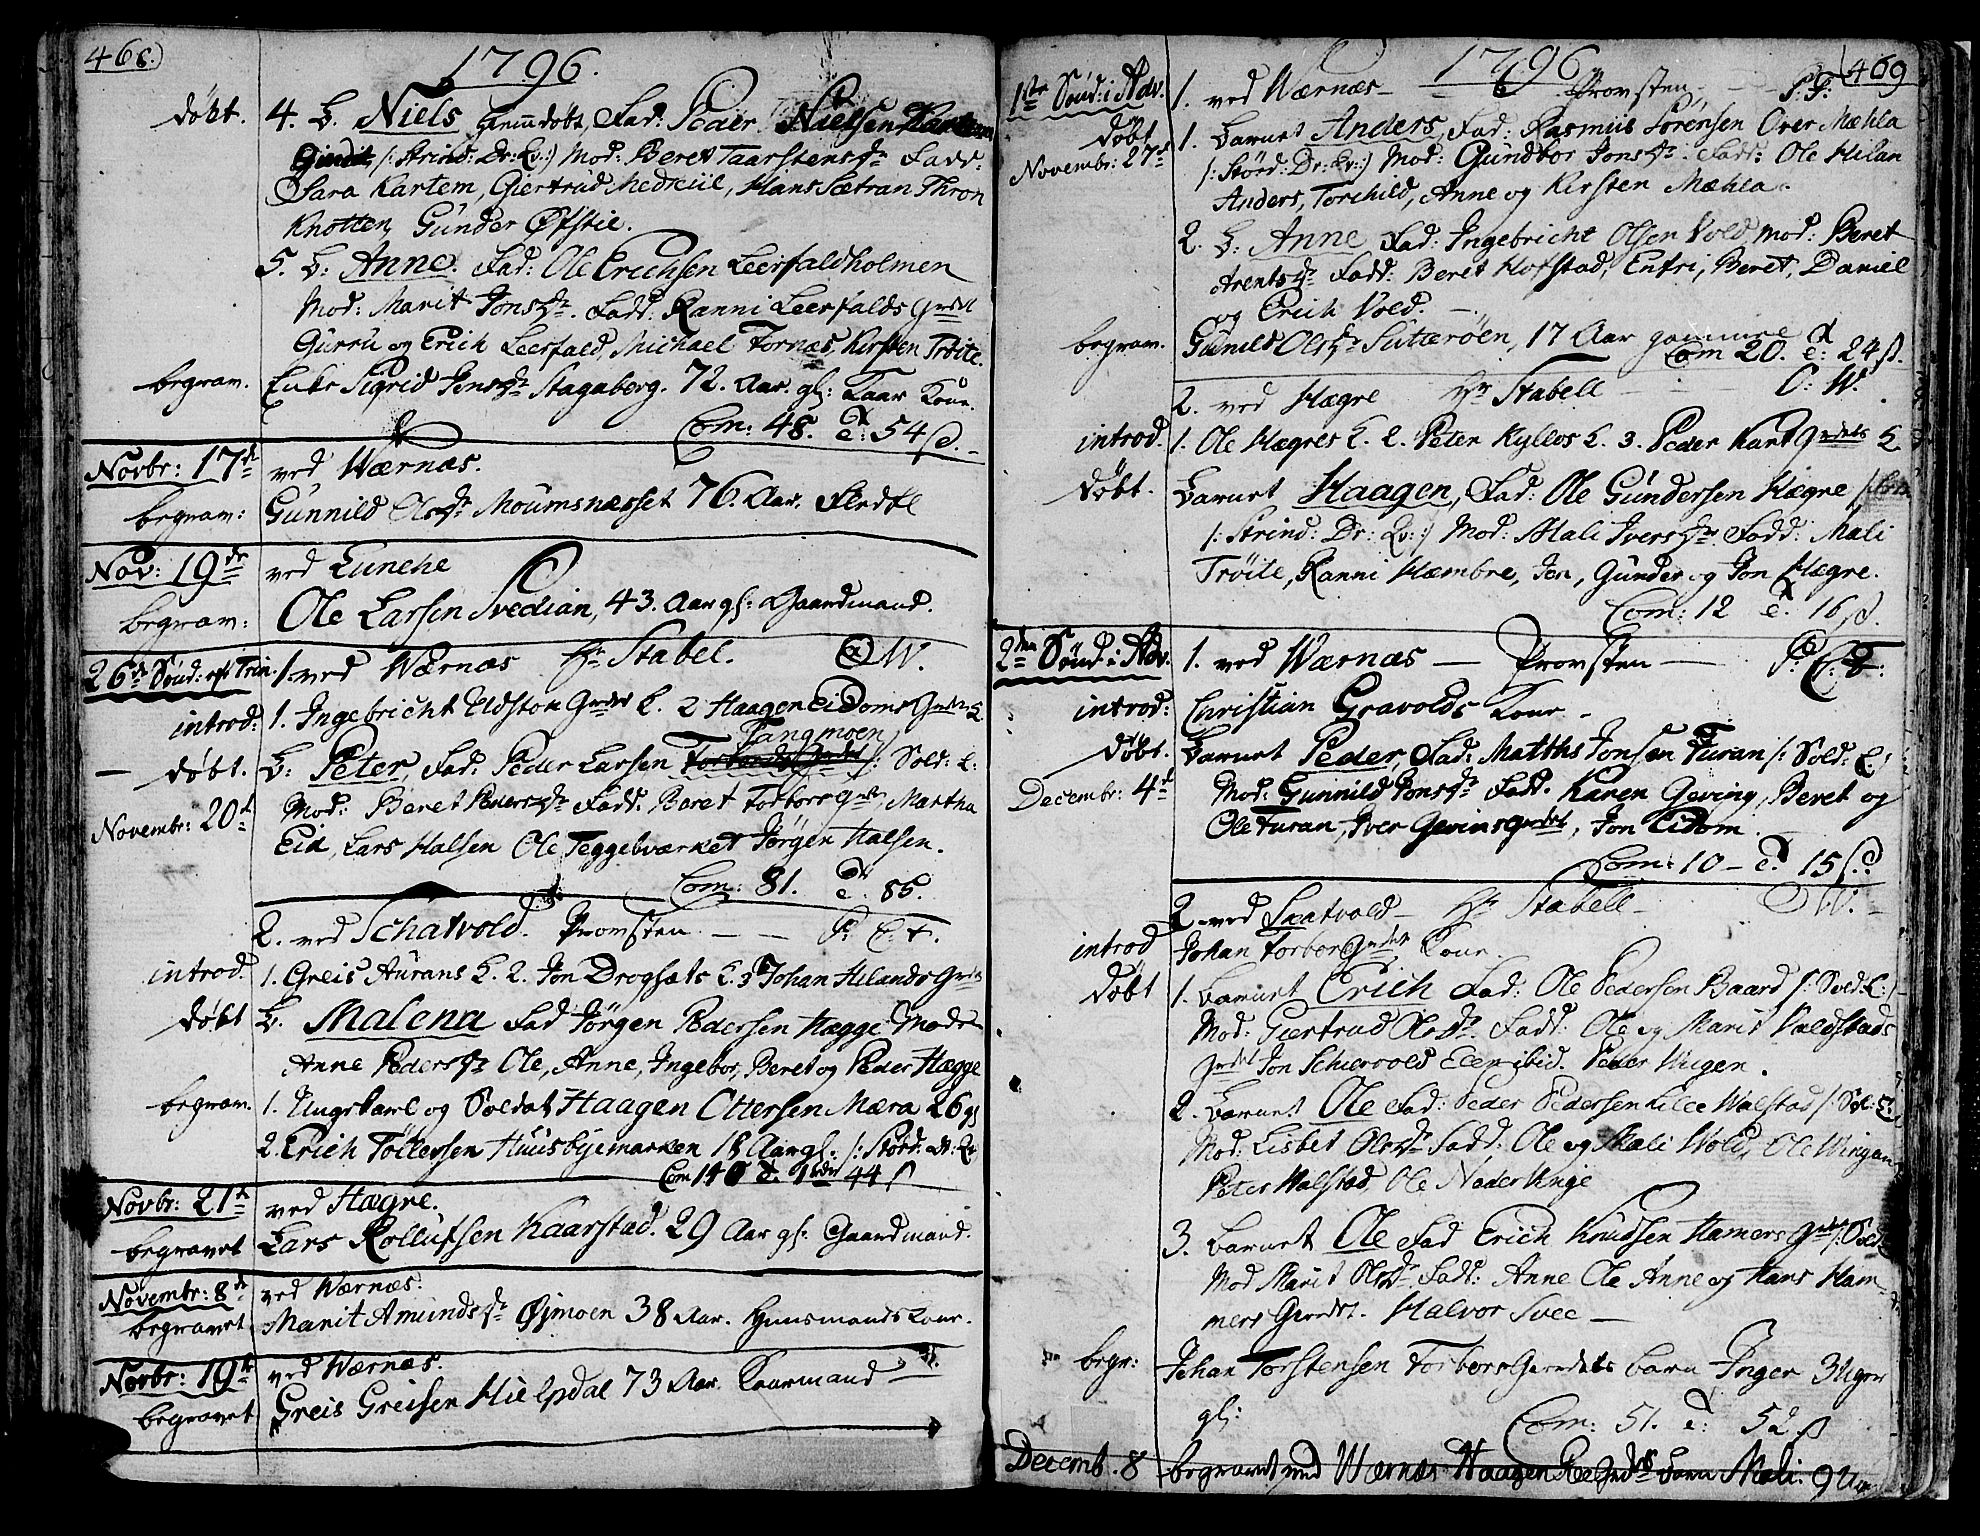 468.)
1796.
døbt.
4. B. Niels Hiemdøbt, Fad: Peder Nielsen Kartem
/: Strind: Dr: Ev: :/ Mod: Beret Taarstensdr. Fadd.
Sara Kartem, Giertrud Medkiil, Hans Sætran Thron
Knotten, Gunder Øfstie.
5. B: Anne. Fad: Ole Erichsen Leerfaldholmen
Mod: Marit Jonsdr. Fadd. Ranni Leerfalds Grdet
Gurru og Erich Leerfald, Michael Fornæs, Kirsten Trøite.
begrav.
Enke Sigrid Jensdr Stagaberg. 72. Aar. gl: Kaar Kone.
Com: 48. d: 54 s.
Novbr: 17de
ved Wærnæs.
begrav:
Gunnild Olsdr Moumsnesset 76. Aar.
Nov: 19de
ved Lunche
begrav:
Ole Larsen Svedian, 43. Aar gl: Gaardmand.
26de Sønd: eft Trin.
1. ved Wærnæs Hr Stabel. W.
introd:
1. Ingebricht Eldston Grdet K. 2 Haagen Eidoms Grdets K.
Tangmoen
døbt.
B: Peter, Fad: Peder Larsen /: Sold: E:
Novembr: 20de
Mod: Beret Pedersdr Fadd: Beret Torbors Grdt, Martha
Eid, Lars Halsen Ole Teggelværket Jørgen Halsen.
Com: 81. d: 85.
2. ved Schatvold. Provsten. — — P: E: T.
introd.
1. Greis Aurans K. 2. Jon Drogsæts K. 3 Johan Hilands Grdets
døbt
B. Malena Fad Jørgen Pedersen Hægge Moder
Anne Pedersdr Ole, Anne, Ingebor, Beret og Peder Hægge
begrav.
1. Ungkarl og Soldat Haagen Ottersen Mæra 26 gl
2. Erich Tøllefsen Huusbyemarken 18 Aar gl. /: Størd: Dr: Ev
Com 140 d. 44 s
Novbr: 21de
ved Hægre.
begravet
Lars Rollufsen Kaarstad. 29 Aar gl. Gaardmand.
Novembr: 8de
ved Wærnæs.
begravet
Marit Amundsdr Øimoen 38 Aar. Huusmands Kone.
Novbr: 19de
ved Wærnæs.
begravet
Greis Greisen Hielpdal 73 Aar. Kaarmand
469
1796
1ste Sønd: i Adv.
1. ved Wærnæs — Provsten, — P: P:
døbt
Novembr: 27de
1. Barnet Anders, Fad: Rasmus Sørensen Over Mæhla
/: Størd: Dr: Ev: :/ Mod: Gundbor Jonsdr. Fadd: Ole Milan
Anders, Torchild, Anne og Kirsten Mæhla.
2. B: Anne Fad: Ingebricht Olsen Vold Mod: Beret
Arentsdr Fadd: Beret Hofstad, Entri, Beret, Daniel
og Erich Vold.
begrav.
Gunild Olsdr Sutterøen, 17 Aar gammel
Com 20. d: 24 s.
2. ved Hægre Hr Stabell — O: W.
introd.
1. Ole Hægres K. 2. Peter Kyllos K. 3. Peder Kart Grdets K
døbt.
Barnet Haagen, Fad: Ole Gundersen Hægre
/: Strind: Dr: Ev: :/ Mod: Mali Iversdr. Fadd: Mali
Trøite, Ranni Hembre, Jen, Gunder og Jon Hægre.
Com: 12 d. 16 s.
2den Sønd: i Adv.
1. ved Wærnæs — Provsten —
introd:
Christian Gravolds Kone
døbt.
Barnet Peder, Fad: Matths Jonsen Furan /: Sold: E:/
Decembr: 4de
Mod: Gunnild Jonsdr Fadd. Karen Geving, Beret og
Ole Furan, Iver Gevinsgrdet, Jon Eidom.
Com: 10 — d. 15 s.
2. ved Skatvold — Hr Stabell — W.
introd
Johan Torbor Grdets Kone.
døbt
1. Barnet Erich Fad: Ole Pedersen Baard /: Sold: E: /
Mod: Giertrud Olsdr. Fadd: Ole og Marit Valdstads
Grdet Jon Schiervold Elen ibid. Peder Wigen.
2. Barnet Ole Fad: Peder Pedersen Lille Walstad /: Sol: E:
Mod: Lisbet Olsdr Fadd: Ole og Mali Wold, Ole Wingan
Peter Walstad, Ole Neder Winge
3. Barnet Ole Fad Erich Knudsen Hamers Grdet /: Sold
Mod Marit Olsdr. Fadd: Anne Ole Anne og Hans Ham-
mers Gierdet. Halvor Svee —
begr:
Johan Torstensen Torbors Gierdets barn Inger 3 Uger
gl:
Com: 51. d: 52 s
Decemb. 8
begravet ved Wærnæs Haagen Ree Grdets barn Mali. 9 U